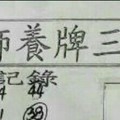 師養牌三
記錄
4 44
38